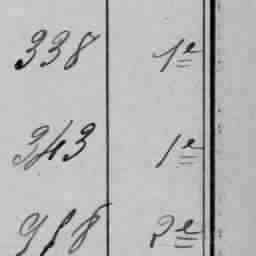 338 1e
343 1e
918 2e